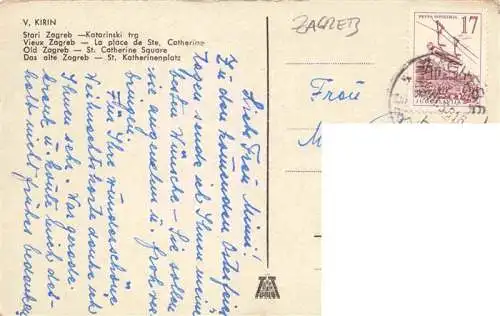 V. KIRIN
Stari Zagreb —Katarinski trg
Vieux Zagreb — La place de Ste, Catherine
Old Zagreb — St. Catherine Square
Das alte Zagreb — St. Katherinenplatz
ZAGREB
17
JUGOSLAVIJA
Frau
M
Liebe Frau Mimi!
Zu den kommenden Osterfeier
tagen sende ich Ihnen meine
besten Wünsche – Sie sollen
sie angenehm u. froh ver
bringen.
Für Ihre wunderschöne
Weihnachtskarte danke ich
Ihnen sehr. War gerade
krank u. konnte mich des-
halb nicht früher bedanken.